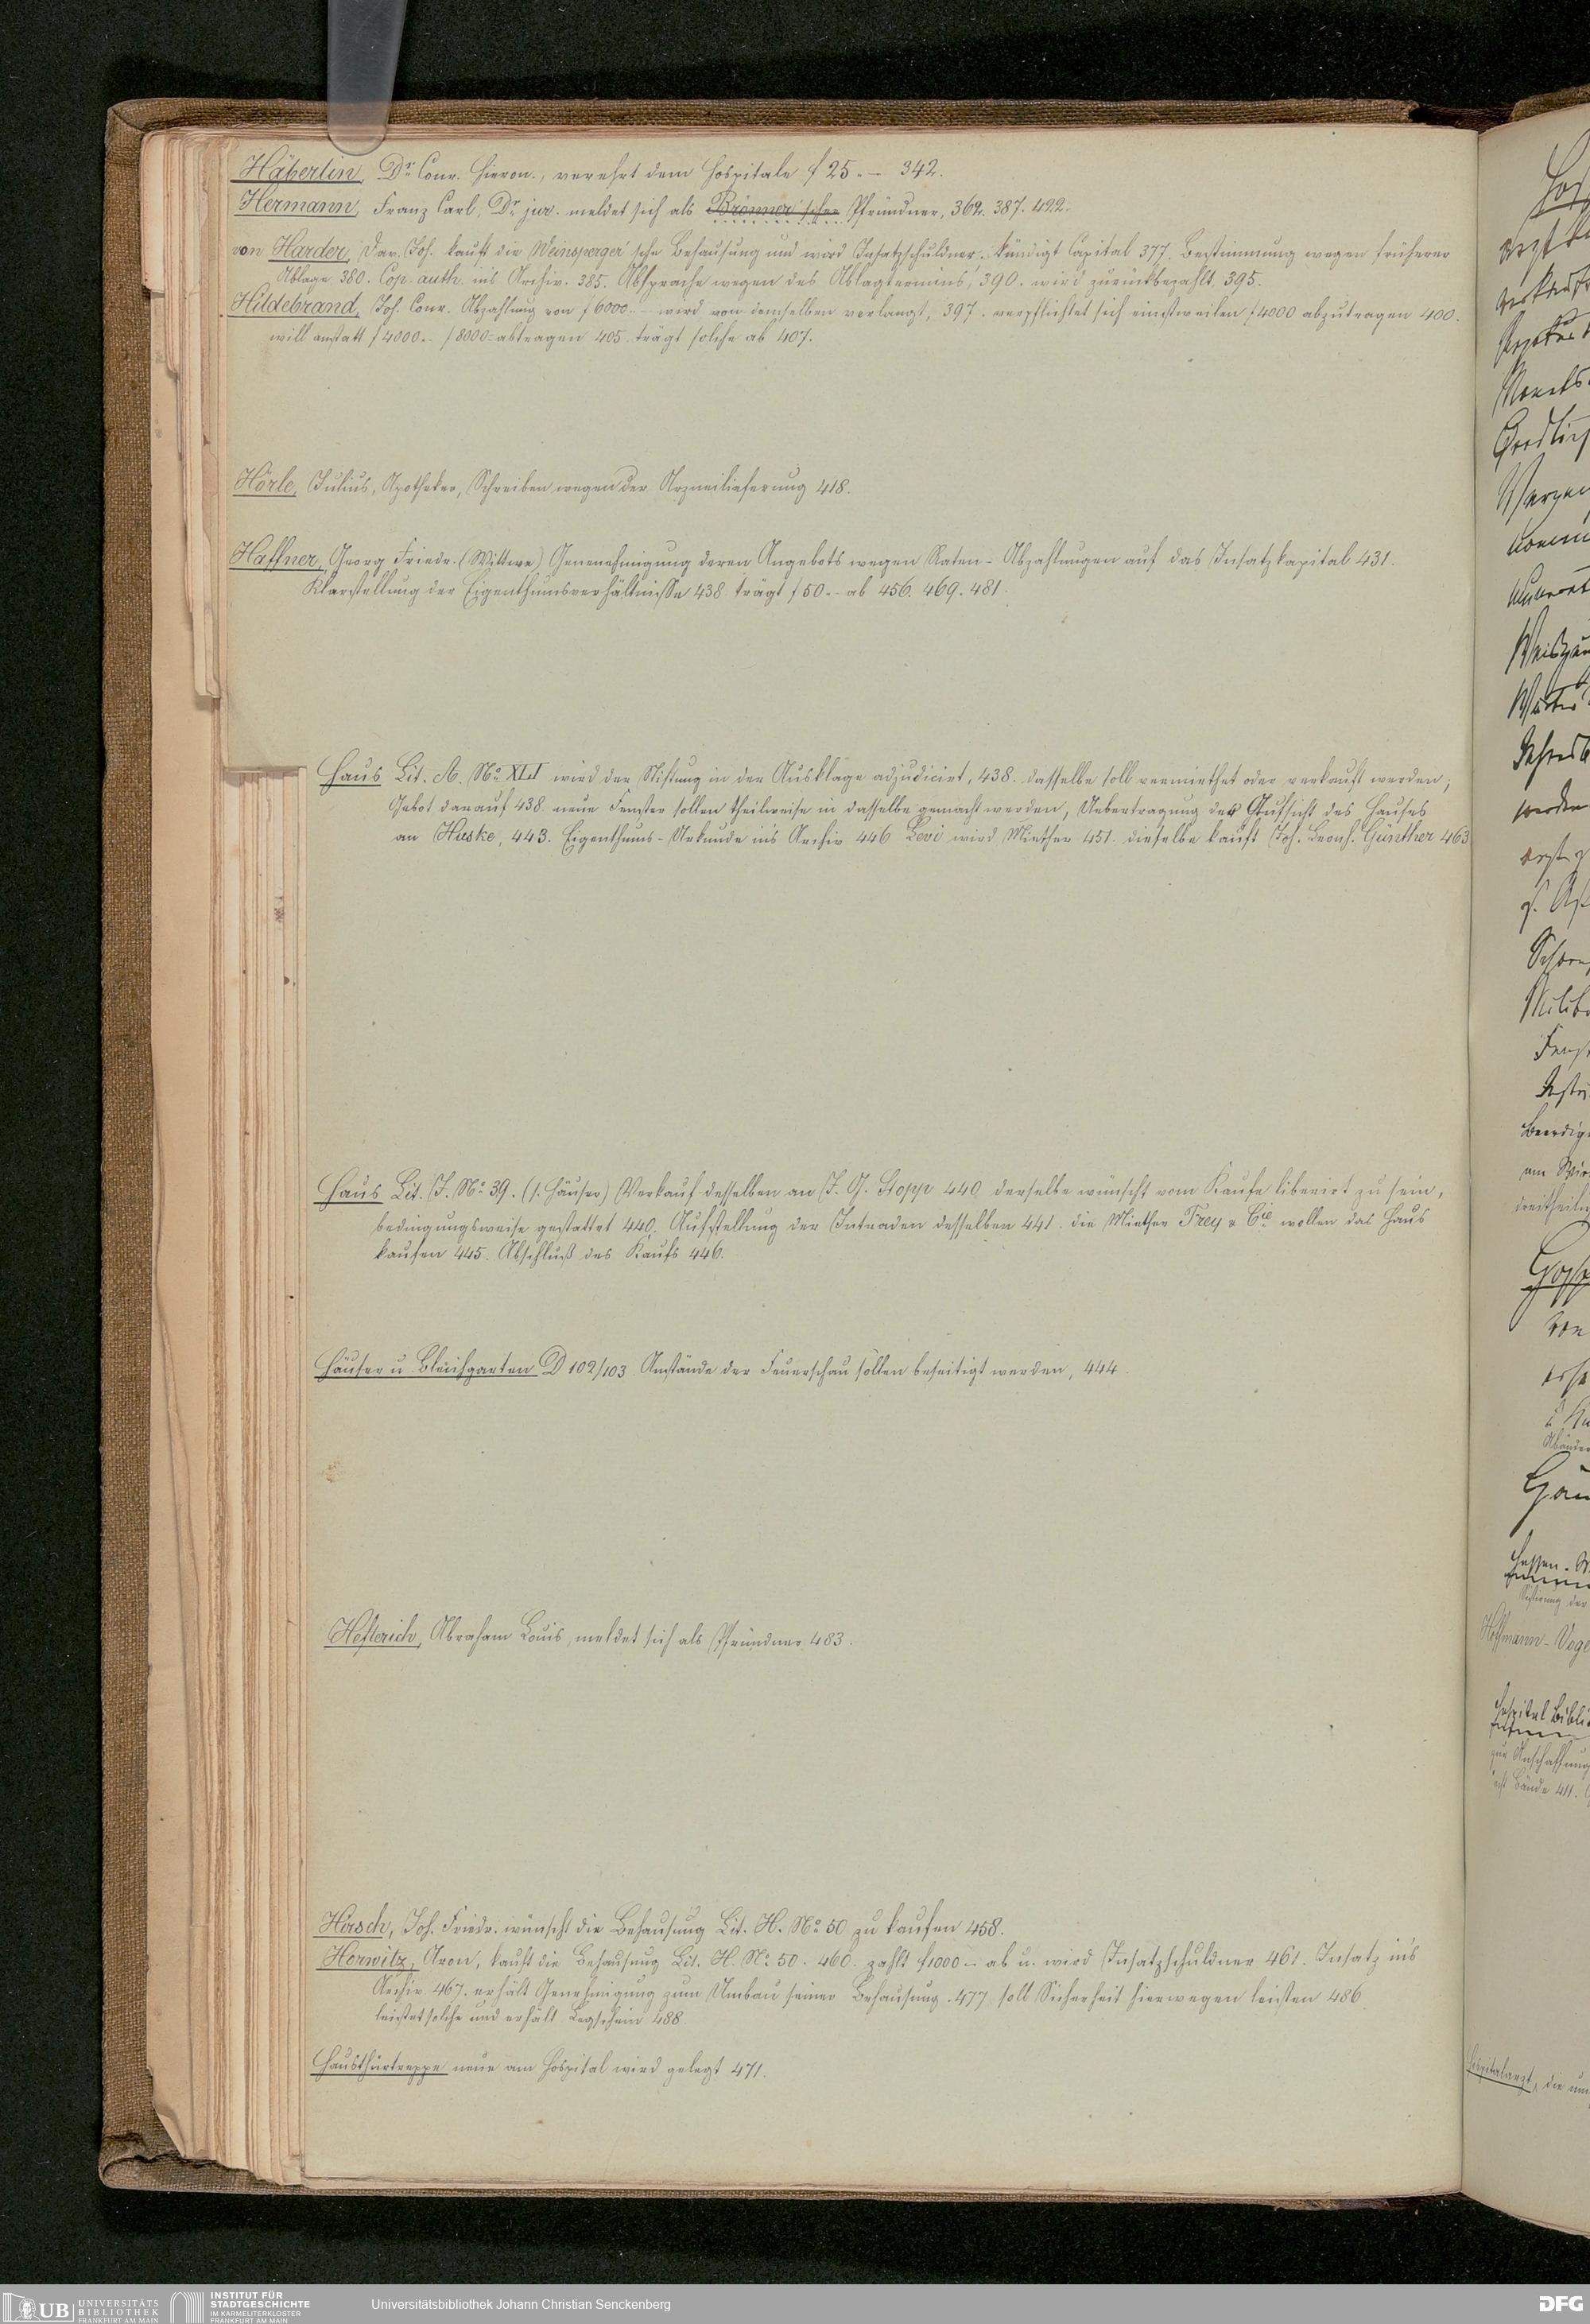 Häberlin, Dr. Conr. Hieron., verehrt dem Hospitale f 25.– 342.
Hermann, Franz Carl, Dr. jur. meldet sich als Brönner'scher Pfründner, 362. 387. 422.
von Harder, Dav. Joh. kauft die Weinsperger'sche Behausung und wird Insatzschuldner, kündigt Capital 377. Bestimmung wegen früherer
Ablage 380. Cop. auth. ins Archiv. 385. Absprache wegen des Ablagtermins, 390. wird zurückbezahlt, 395.
Hildebrand, Joh. Conr. Abzahlung von f 6000.– wird von demselben verlangt, 397. verpflichtet sich einstweilen f 4000 abzutragen 400.
will anstatt f 4000.– f 8000= abtragen 405. trägt solche ab 407.
Hörle, Julius, Apotheker, Schreiben wegen der Arzneilieferung 418.
Haffner, Georg Friedr. (Wittwe) Genenehmigung deren Angebots wegen Raten-Abzahlungen auf das Insatzkapital 431.
Klarstellung der Eigenthumsverhältnisse 438 trägt f 50.– ab 456. 469. 481.
Haus Lit. A. No. XLI wird der Stiftung in der Ausklage adjudicirt, 438. dasselbe soll vermiethet oder verkauft werden;
Gebot darauf 438. neue Fenster sollen theilweise in dasselbe gemacht werden, Uebertragung der Aufsicht des Hauses
an Huske, 443. Eigenthums-Urkunde ins Archiv 446 Levi wird Miether 451. dieselbe kauft Joh. Leonh. Günther 463
Haus Lit. J. No. 39. (1. Häuser) Verkauf desselben an J. G. Stopp 440 derselbe wünscht vom Kaufe liberirt zu sein,
bedingungsweise gestattet 440. Aufstellung der Intraden desselben 441. die Miether Frey & Cie wollen das Haus
kaufen 445. Abschluß des Kaufs 446.
Häuser u. Bleichgarten D 102/103 Anstände der Feuerschau sollen beseitigt werden, 444.
Hefterich, Abraham Louis, meldet sich als Pfründner 483.
Hirsch, Joh. Friedr. wünscht die Behausung Lit. H. No. 50 zu kaufen 458.
Horwitz, Aron, kauft die Behausung Lit. H. No. 50. 460. zahlt f 1000.– ab u. wird Insatzschuldner 461. Insatz ins
Archiv 467. erhält Genehmigung zum Umbau seiner Behausung 477 soll Sicherheit hierwegen leisten 486
leistet solche und erhält Legschein 488
Hausthürtreppe neue am Hospital wird gelegt 471.
Hospitalarzt, die
UB UNIVERSITÄTS BIBLIOTHEK FRANKFURT AM MAIN
INSTITUT FÜR STADTGESCHICHTE IM KARMELITERKLOSTER FRANKFURT AM MAIN
Universitätsbibliothek Johann Christian Senckenberg
DFG